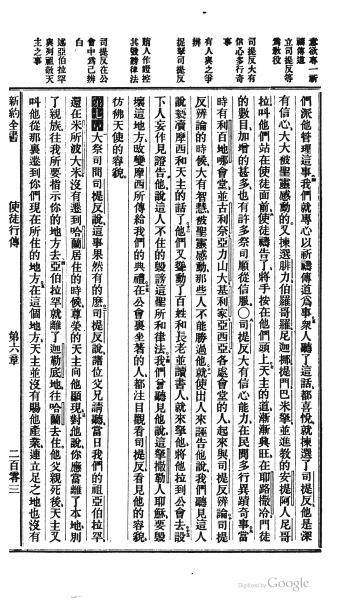 意欲專一祈禱傳道
立司提反等爲教役
司提反大有信心多行奇事
有人與之爭辨
捉拏司提反
賄人作證控其毀謗律法
司提反在公會中爲己辨白
述亞伯拉罕與列祖敬天主之事
們派他管理這事我們就專心以祈禱傳道爲事衆人聽了這話都喜悅就揀選了司提反他是深
有信心大大被聖靈感動的又揀選腓力伯羅哥羅尼迦挪提門巴米拏並進教的安提阿人尼哥
拉叫他們站在使徒面前使徒禱告了將手按在他們頭上天主的道漸漸興旺在耶路撒冷門徒
的數目加增的甚多也有許多祭司順從信服○司提反大有信心能力在民間多行異蹟奇事當
時有利百地哪會堂並古利奈亞力山大基利家亞西亞各處會堂的人起來與司提反辨論司提
反辨論的時候大有智慧被聖靈感動那些人不能勝過他就使出人來誣告他說我們聽見這人
說褻瀆摩西和天主的話了他們又聳動了百姓和長老並讀書人就來拏他將他拉到公會去設
下人妄作見證告他說這人不住的毀謗這聖所和律法我們曾聽見他說這拏撒勒人耶穌要毀
壞這地方改變摩西所傳給我們的典禮在公會裏坐著的人都注目觀看司提反看見他的容貌
彷彿天使的容貌
第七章大祭司問司提反說這事果然有的麽司提反說諸位父兄請聽當日我們的祖亞伯拉罕
還在米所波大米沒有遷到哈蘭居住的時候尊榮的天主向他顯現對他說你應當離了本地別
了親族往我所要指示你的地方去亞伯拉罕就離了迦勒底地往哈蘭去住他父親死後天主又
叫他從那裏遷到你們現在所住的地方在這個地方天主並沒有賜他產業連立足之地也沒有
新約全書
使徒行傳
第六章
二百零三
Digitized by Google